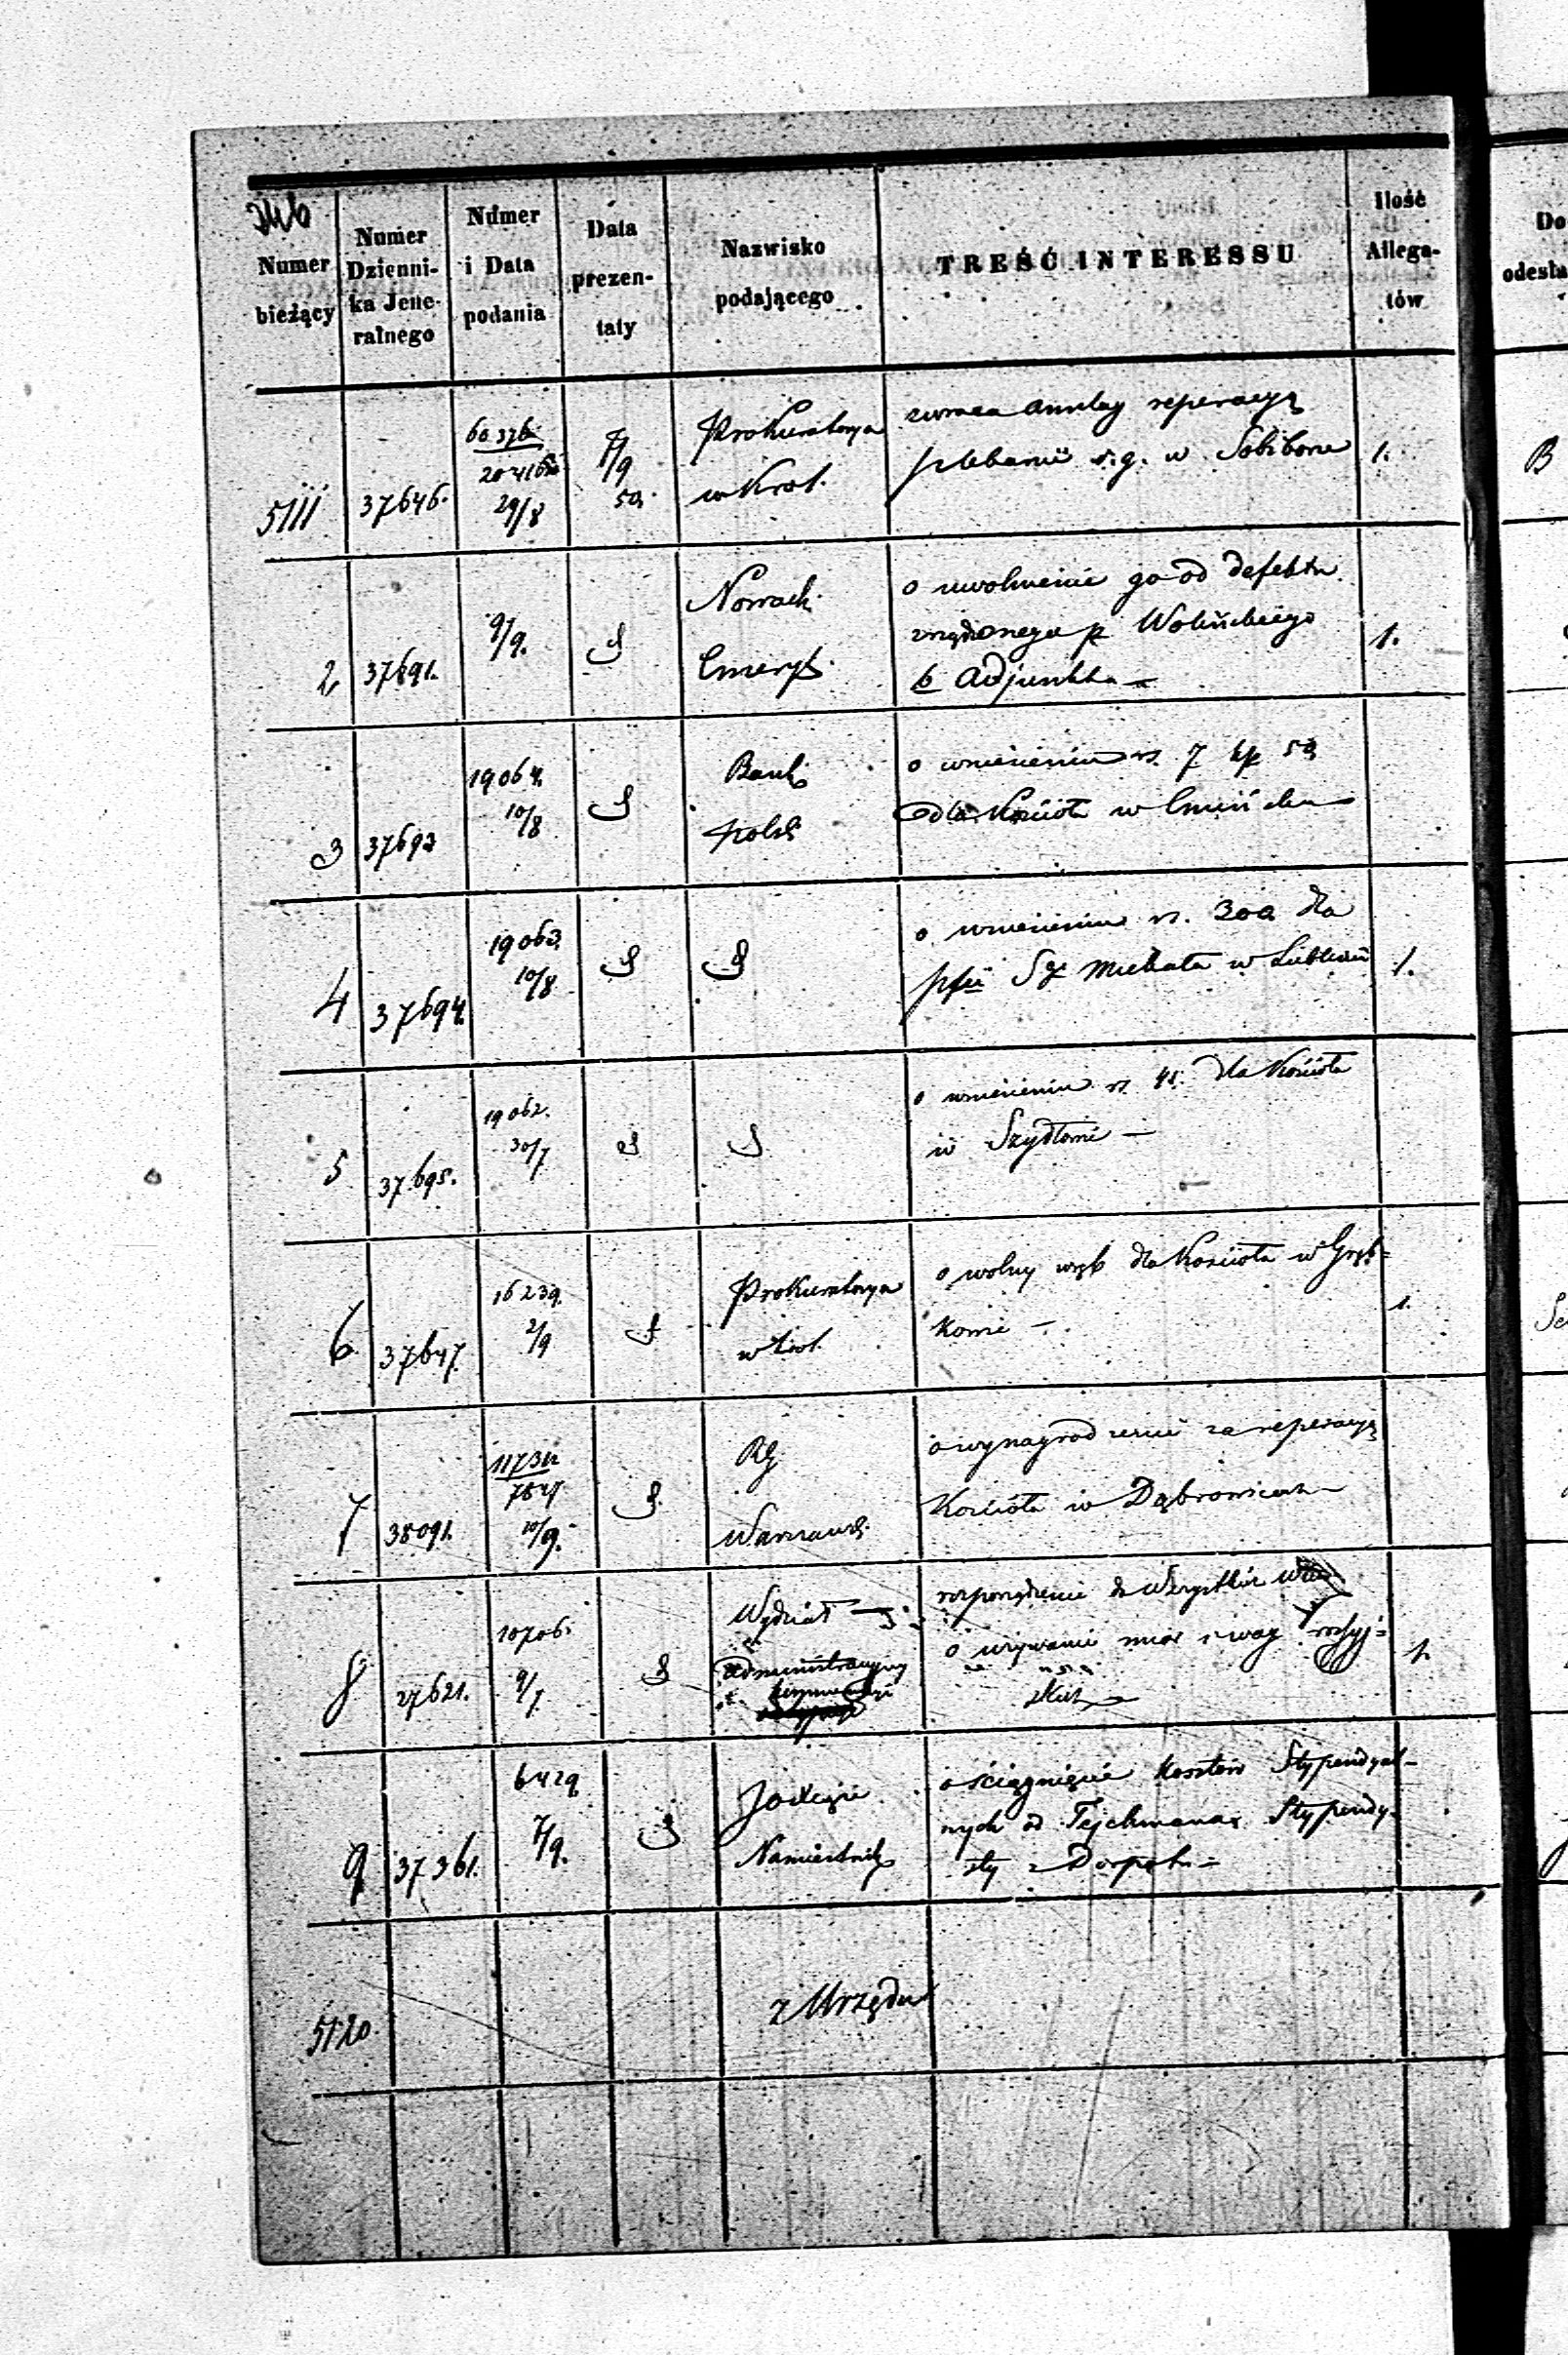 Numer bieżący
Numer Dzienni-
ka Jene-
ralnego
Numer
i Data
podania
Data
prezen-
taty
Nazwisko
podającego
TREŚĆ INTERESSU
Ilość
Allega-
tów
Do
odesła
5111
37646.
29/8
7/9
50.
Prokuratorya
w Krol.
reperacyą
plebanii r.g. w Sobiborze
1.
B
2
37691.
9/9.
Nowack
Emeryt.
o uwolnienie go od defektu
Wolińskiego
b Adjunkta —
1.
3
37693
19064.
10/8
Bank
Polski
o wniesieniu rs. 7 kp 50
dla Kościoła w
4
37694.
19063.
10/8
o wniesieniu rs. 300 dla
Sgo Michała w Lublinie
1.
5
37695.
19062.
30/7
o wniesieniu rs 45. dla Kościoła
w Szydłowie —
6
37647.
16239.
2/9
Prokuratorya
w Król.
o wolny wrąb dla Kościoła w Gręb=
kowie —
1.
7
38091.
10/9.
RG
Warszaws.
o wynagrodzenie za reperacyą
Kościoła w Dąbrowicach —
8
27621.
10706.
9/7.
Wydział
Administracyjny
rozporządzenie do Wszystkich
o używanie miar i wag rossyj=
skich
1.
9
37361.
6429
7/9.
Xiąże
Namiestnik
o ściągnięcie kosztów Stypendyal-
nych od Tejchmana Stypendy-
sty z Dorpatu —
5120
z Urzędu